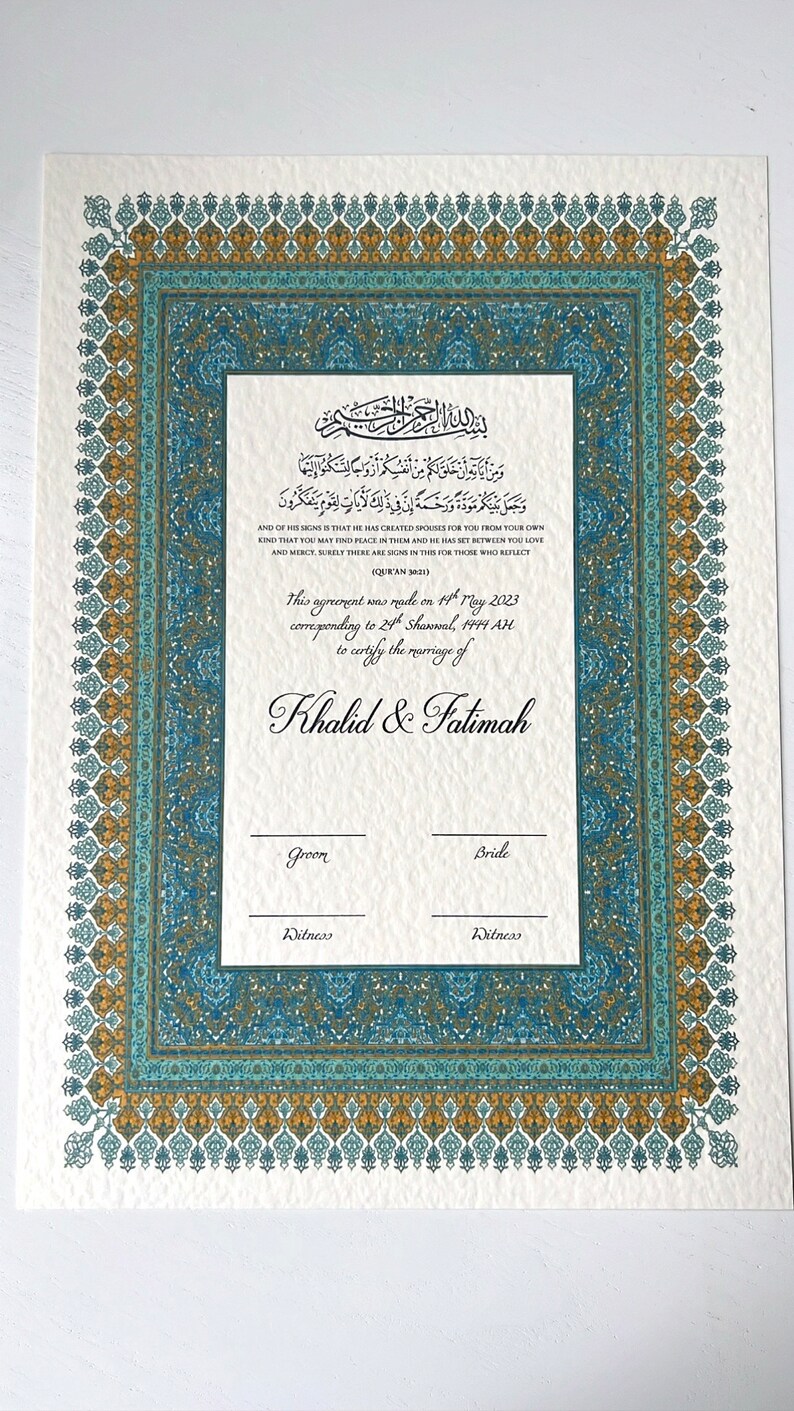 بسم الله الرحمن الرحيم
وَمِنْ آيَاتِهِ أَنْ خَلَقَ لَكُمْ مِنْ أَنْفُسِكُمْ أَزْوَاجًا لِتَسْكُنُوا إِلَيْهَا
وَجَعَلَ بَيْنَكُمْ مَوَدَّةً وَرَحْمَةً إِنَّ فِي ذَلِكَ لَآيَاتٍ لِقَوْمٍ يَتَفَكَّرُونَ
AND OF HIS SIGNS IS THAT HE HAS CREATED SPOUSES FOR YOU FROM YOUR OWN
KIND THAT YOU MAY FIND PEACE IN THEM AND HE HAS SET BETWEEN YOU LOVE
AND MERCY, SURELY THERE ARE SIGNS IN THIS FOR THOSE WHO REFLECT
(QUR'AN 30:21)
This agreement was made on 14th May 2023
corresponding to 24th Shawwal, 1444 AH
to certify the marriage of
Khalid & Fatimah
Groom Bride
Witness Witness